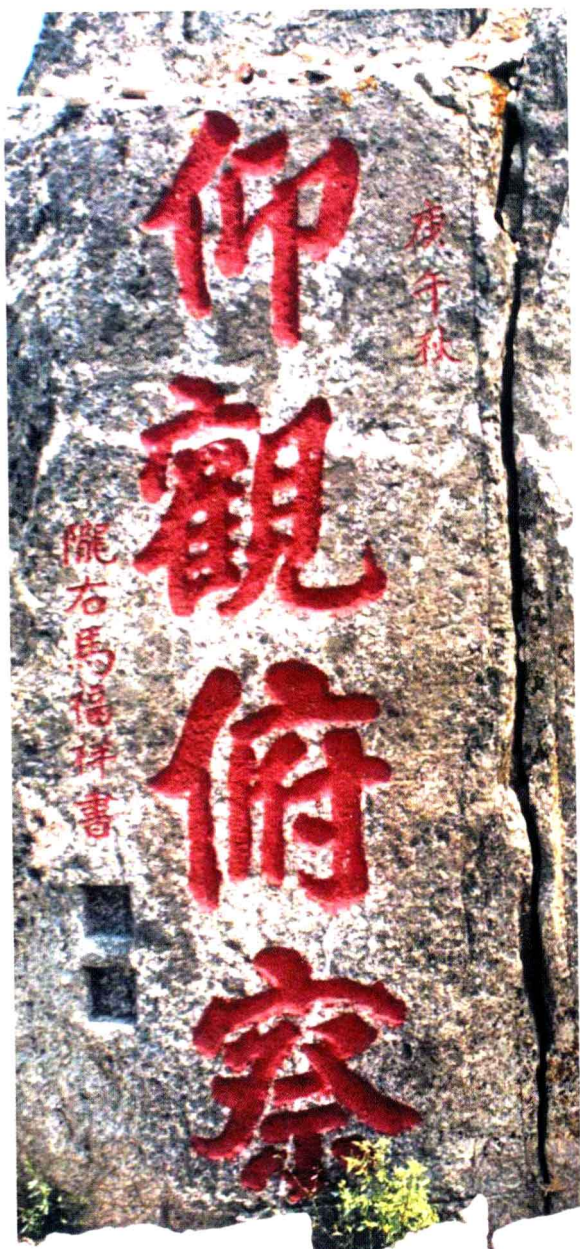 庚午秋
仰觀俯察
隴右馬福祥書